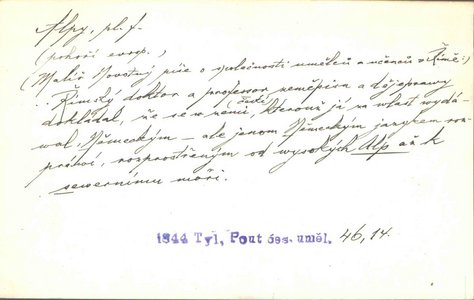 Alpy, pl. f.
(pohoří evrop.)
(Malíř Novotný píše o společnosti umělců a učenců v Římě:)
.. Římský doktor a professor zeměpisu a dějopravy
dokládal, že se v zemi, (české) kterouž já za vlast vydá-
wal, Německým – ale jenom Německým jazykem roz-
práwí, rozprostřeným od wysokých Alp až k
sewernímu moři.
1844 Tyl, Pout čes. uměl. 46, 14.